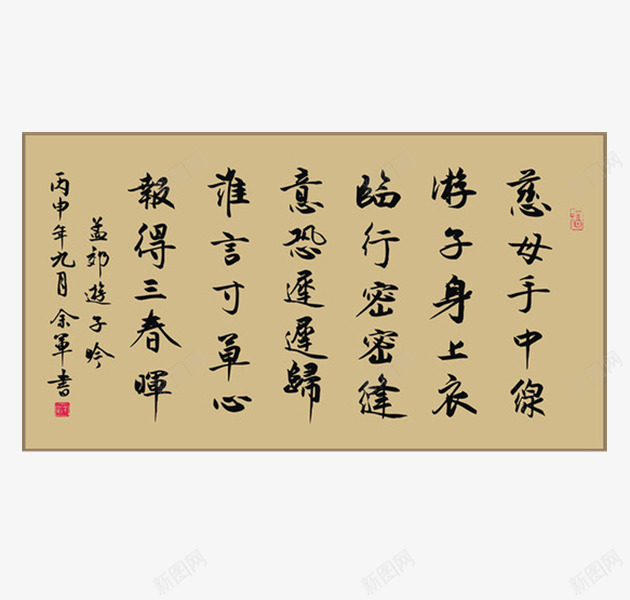 慈母手中線
游子身上衣
臨行密密縫
意恐遲遲歸
誰言寸草心
報得三春暉
孟郊遊子吟
丙申年九月余軍書
新图网